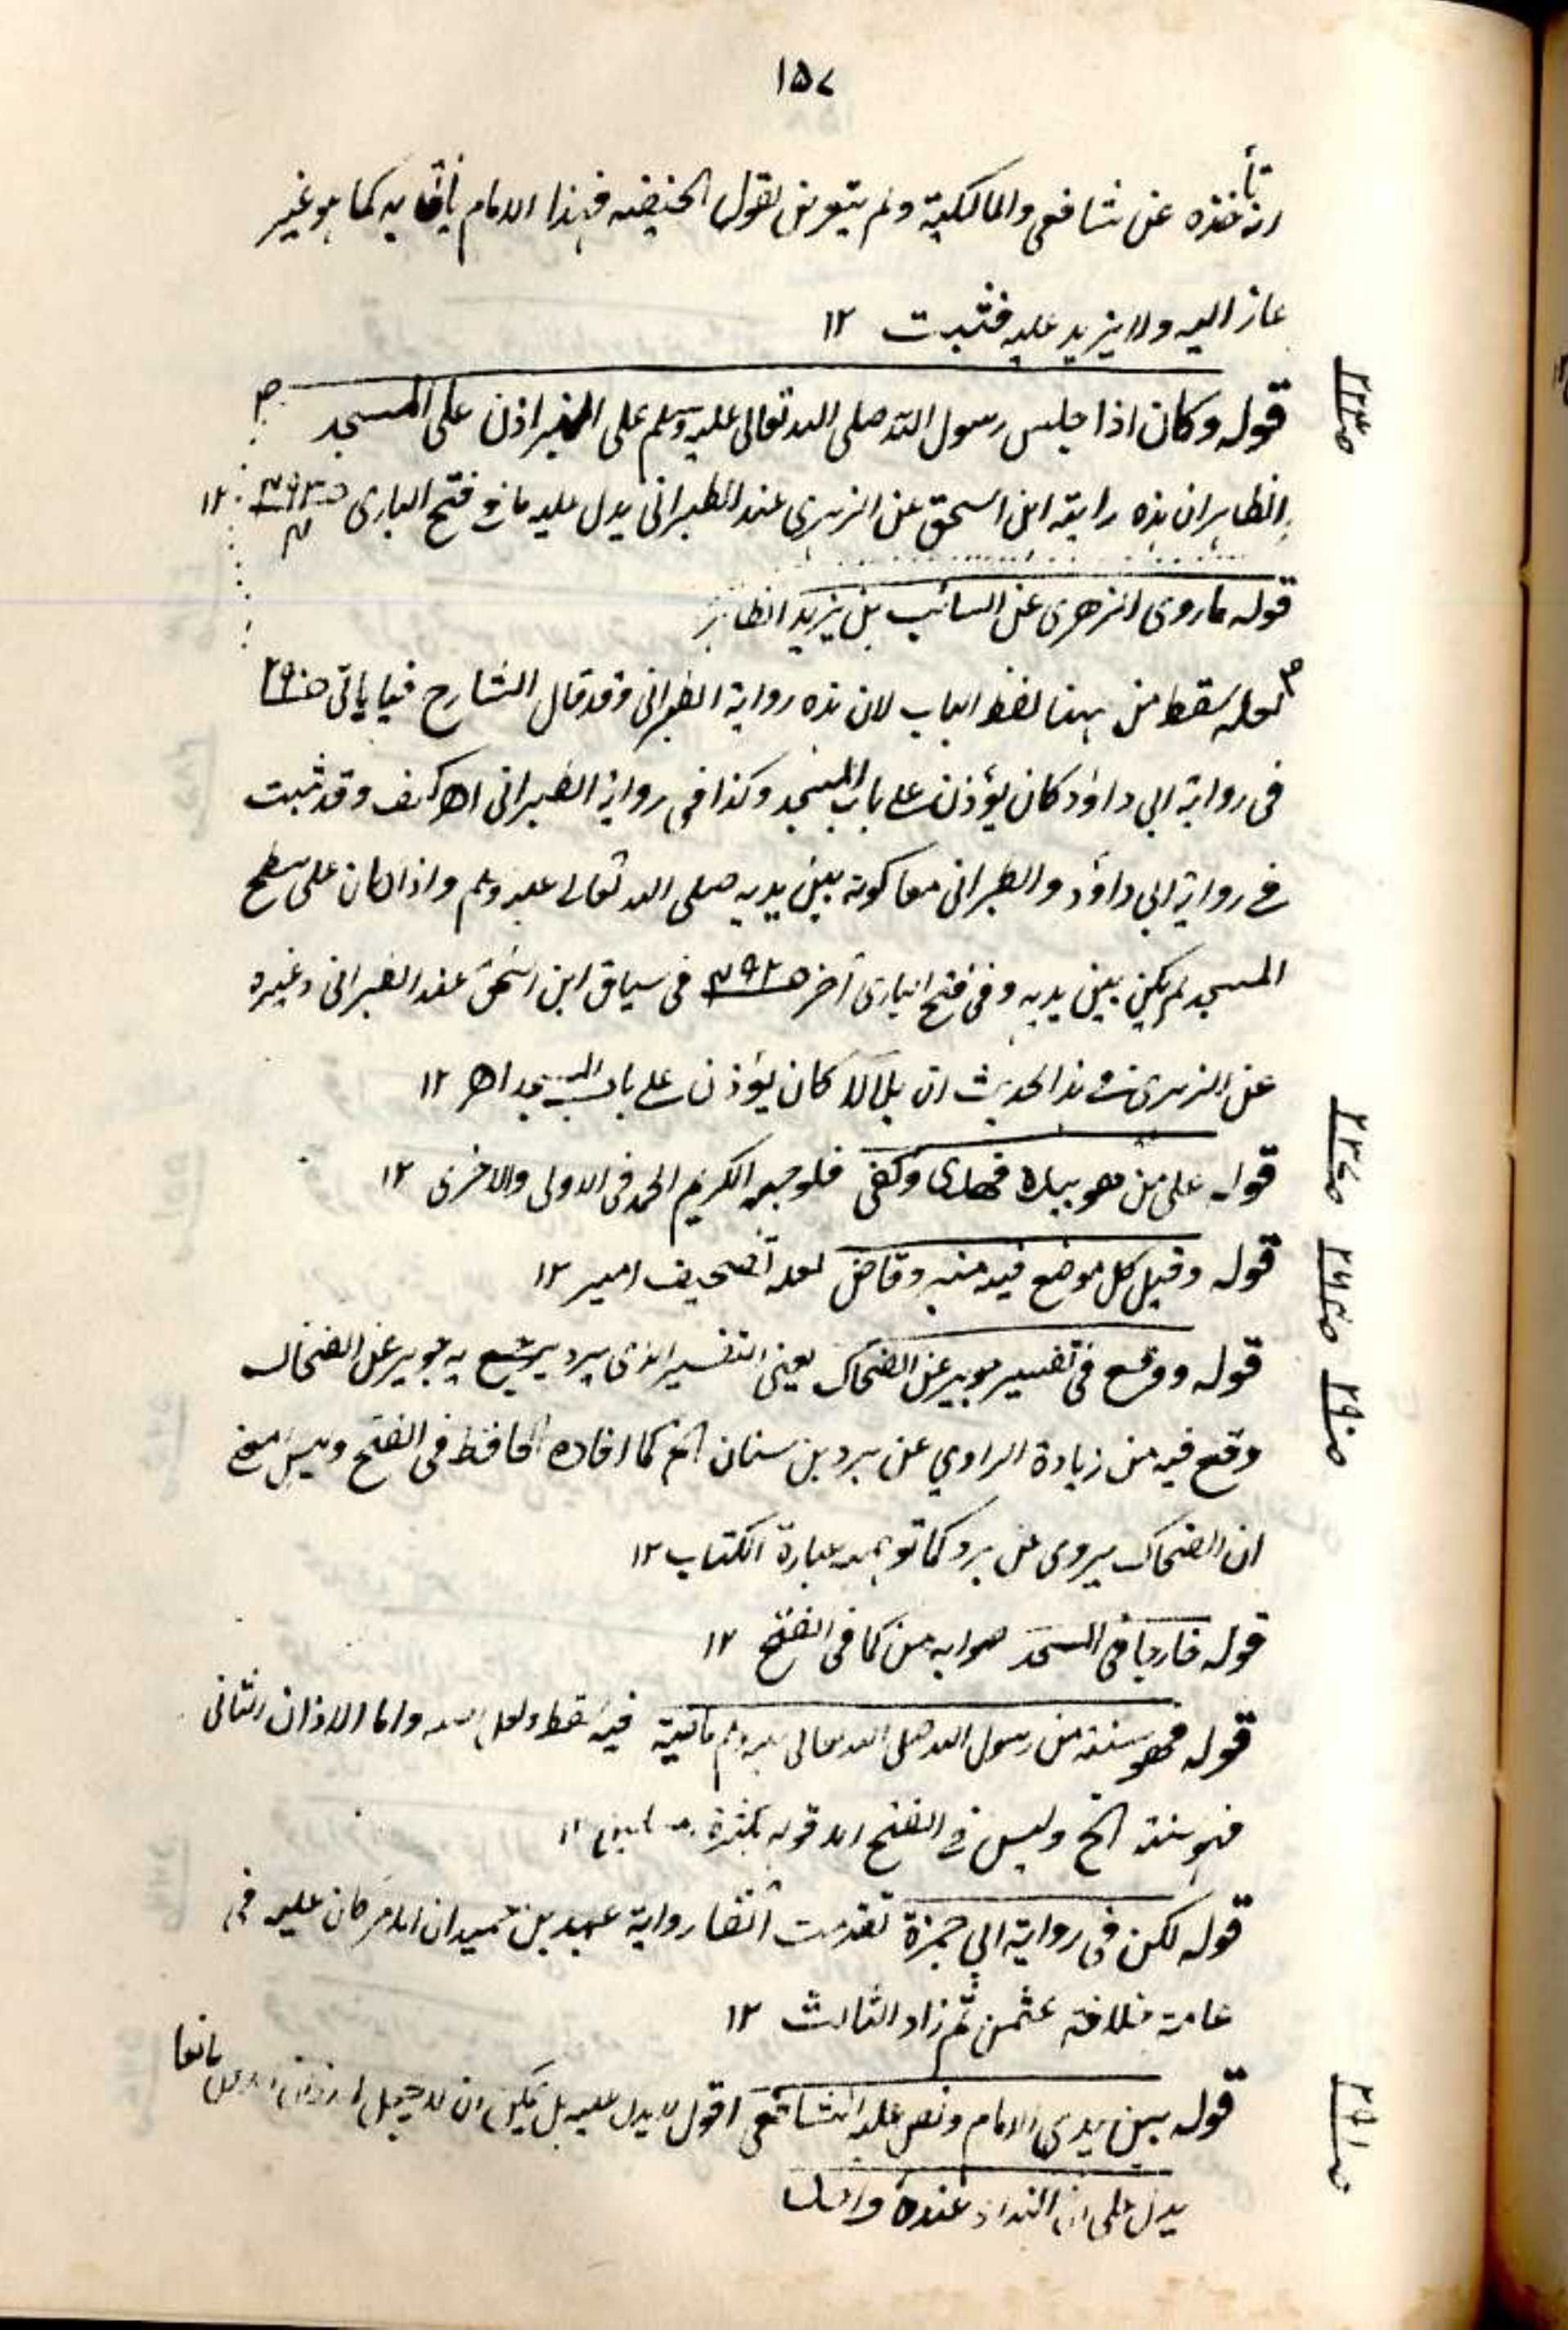 ١٥٧
عن شافعى والمالكية ولم يتعرض لقول الحنفيه فهذا الامام كما هو غير
عاز اليه ولا يزيد عليه فثبت ١٢
قوله وكان اذا جلس رسول الله صلى الله تعالى عليه وسلم على المنبر اذن على المسجد
الظاهر ان هذه رواية ابن اسحق عن الزهرى عند الطبرانى يدل عليه ما فى فتح البارى ١٢
قوله ما روى الزهرى عن السائب بن يزيد الظاهر
لعله سقط من ههنا لفظ الباب لان هذه رواية الطبرانى وقد قال الشارح فيما ياتى
فى رواية ابى داؤد كان يؤذن على باب المسجد وكذا فى رواية الطبرانى اھ كيف وقد ثبت
فى رواية ابى داؤد والطبرانى معا كونه بين يديه صلى الله تعالى عليه وسلم واذا كان على سطح
المسجد لم يكن بين يديه وفى فتح البارى آخر ص ٣٩٣ فى سياق ابن اسحق عند الطبرانى وغيره
عن الزهرى فى هذا الحديث ان بلالا كان يؤذن على باب المسجد اھ ١٢
قوله على من هو بباره فهدى وكفى فلوجهه الكريم الحمد فى الاولى والاخرى ١٢
قوله وقيل كل موضع فيه منبر وقاض لعله تصحيف امير ١٢
قوله ووقع فى تفسير جويبر عن الضحاك يعنى التفسير الذى يرويه جويبر عن الضحاك
وقع فيه من زيادة الراوي عن برد بن سنان الخ كما افاده الحافظ فى الفتح وليس
ان الضحاك يروى عن برد كما توهمه عبارة الكتاب ١٢
قوله خارجا فى المسجد صوابه من كما فى الفتح ١٢
قوله فهو سنة من رسول الله صلى الله تعالى عليه وسلم ماضية فيه سقط ولعل واما الاذان الثانى
فهو سنة الخ وليس فى الفتح
قوله لكن فى رواية ابى حمزة تقدمت آنفا رواية عبد بن حميد ان الامر كان عليه فى
عامة خلافة عثمن ثم زاد الثالث ١٢
قوله بين يدى الامام ونص عليه الشافعى اقول لا يدل عليه بل يمكن ان
يدل على ان النداء عنده